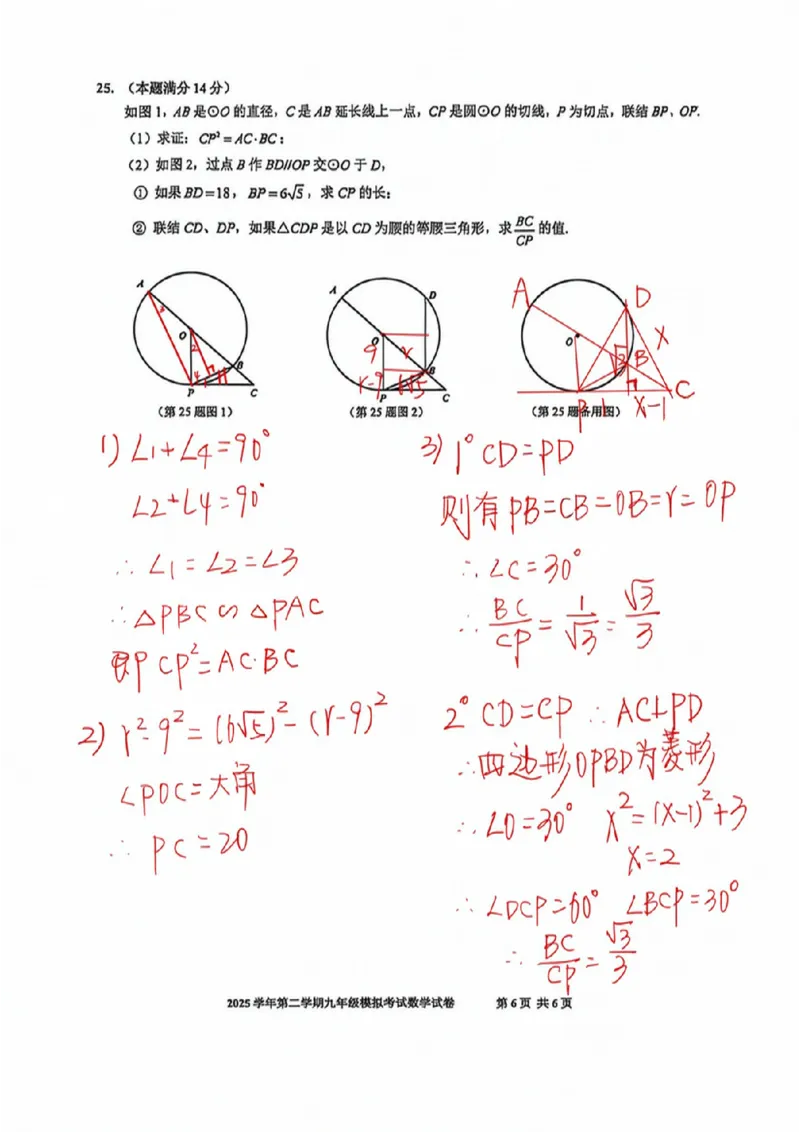 25. （本题满分 14 分）
如图 1，AB 是⊙O 的直径，C 是 AB 延长线上一点，CP 是圆⊙O 的切线，P 为切点，联结 BP、OP.
（1）求证：CP²=AC·BC；
（2）如图 2，过点 B 作 BD//OP 交⊙O 于 D，
① 如果 BD=18，BP=6√5，求 CP 的长；
② 联结 CD、DP，如果△CDP 是以 CD 为腰的等腰三角形，求 BC/CP 的值.
A O B P C 3 2 4 1
A D O B P C 9 r r-9 6√5
A D O B P C x √3 1 x-1
（第 25 题图 1） （第 25 题图 2） （第 25 题备用图）
1) ∠1+∠4=90°
∠2+∠4=90°
∴ ∠1=∠2=∠3
∴ △PBC∽△PAC
即 CP²=AC·BC
2) r²-9²=(6√5)²-(r-9)²
∠POC=大角
∴ PC=20
3) 1° CD=PD
则有 PB=CB=OB=r=OP
∴ ∠C=30°
∴ BC/CP=1/√3=√3/3
2° CD=CP ∴ AC⊥PD
∴四边形OPBD为菱形
∴ ∠D=30° x²=(x-1)²+3
x=2
∴ ∠DCP=60° ∠BCP=30°
∴ BC/CP=√3/3
2025 学年第二学期九年级模拟考试数学试卷 第 6 页 共 6 页